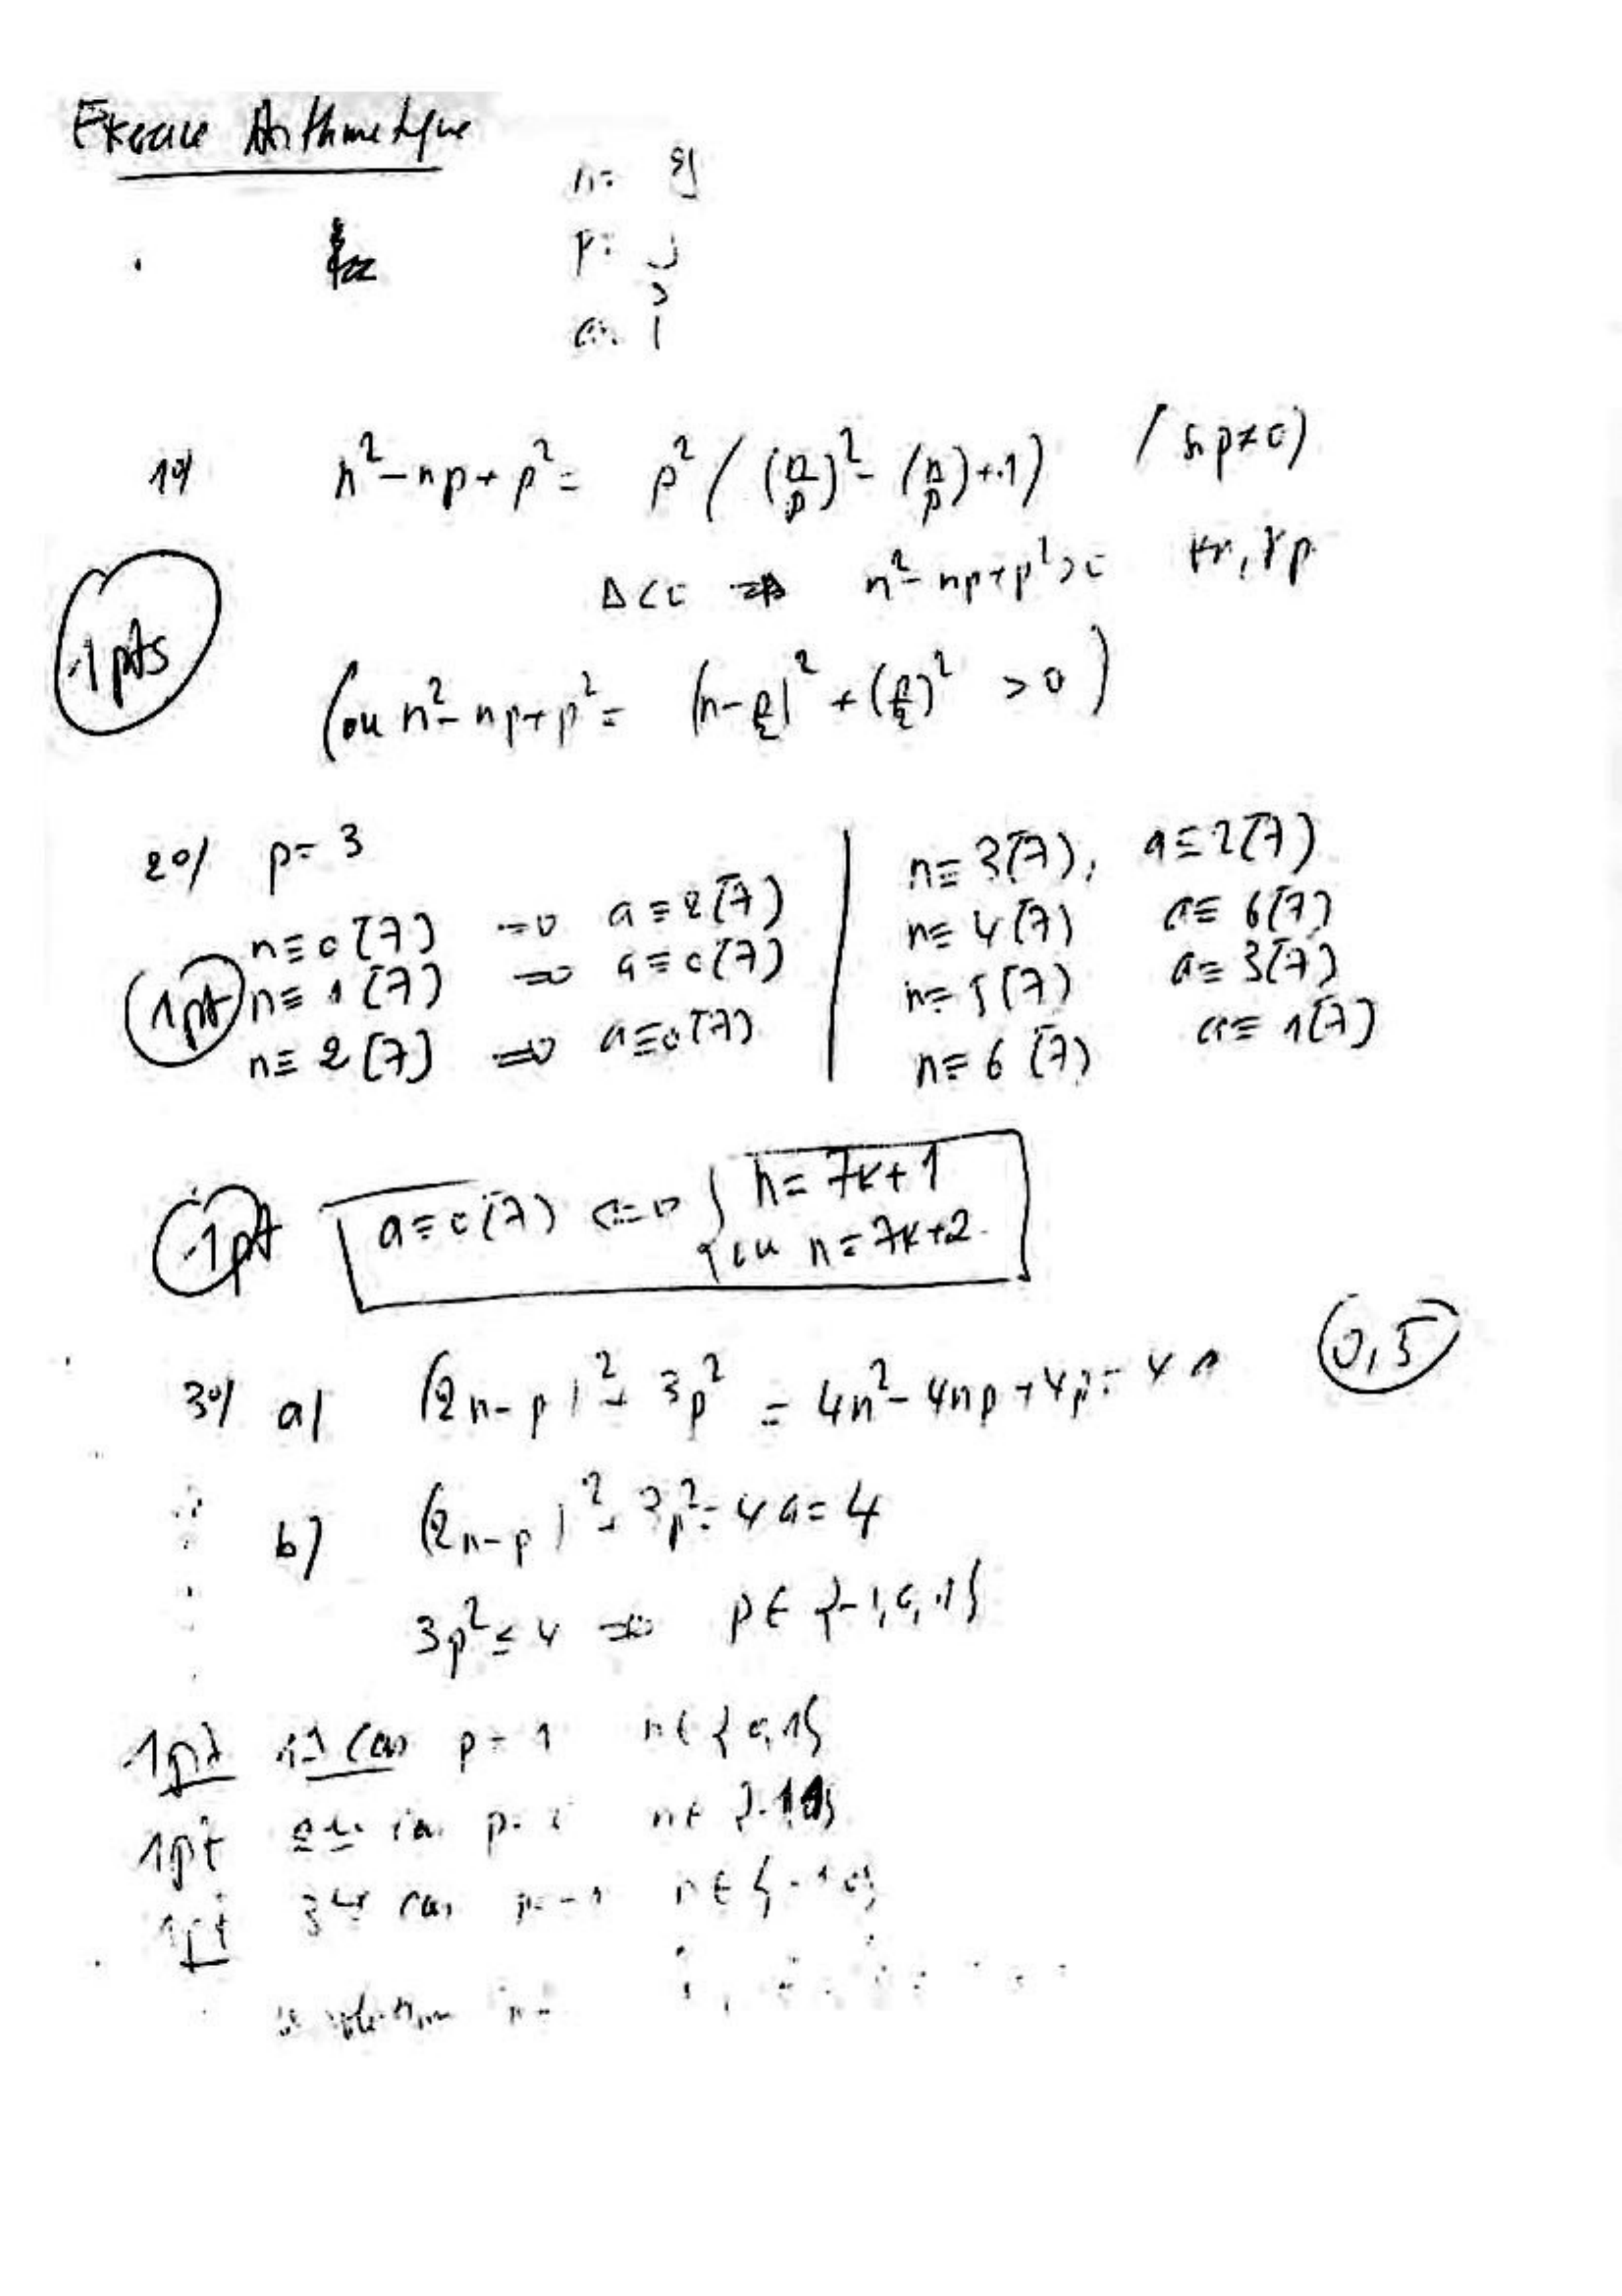 Exercice Arithmetique
n=
p=
a=
1°/ n²-np+p² = p² ( (n/p)² - (n/p)+1) (si p≠0)
Δ<0 => n²-np+p²>0 ∀n,∀p
1pts
(ou n²-np+p² = (n-p/2)² + (p/2)² >0)
2°/ p=3
n≡0[7] => a≡2[7] | n≡3[7], a≡2[7]
n≡1[7] => a≡0[7] | n≡4[7] a≡6[7]
1pt
n≡2[7] => a≡0[7] | n≡5[7] a≡3[7]
n≡6[7] a≡1[7]
1pt a≡0[7] <=> { n=7k+1
ou n=7k+2.
3°/ a/ (2n-p)²+3p² = 4n²-4np+4p²=4a 0,5
b/ (2n-p)²+3p²=4a=4
3p²≤4 => p∈{-1,0,1}
1pt 1er cas p=1 n∈{0,1}
1pt 2e cas p=0 n∈{-1,1}
1pt 3e cas p=-1 n∈{-1,0}